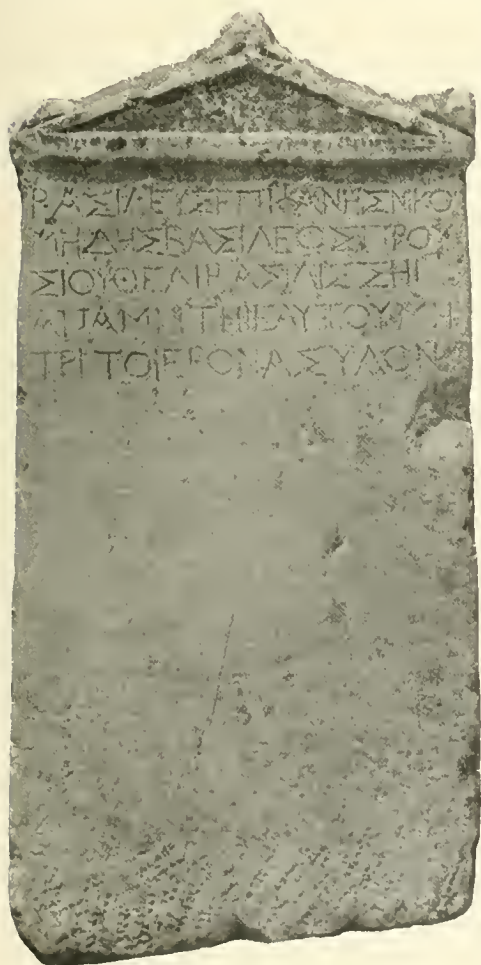 ΒΑΣΙΛΕΥΣΕΠΙΦΑΝΗΣΝΙΚΟ
ΜΗΔΗΣΒΑΣΙΛΕΩΣΠΡΟΥ
ΣΙΟΥΘΕΑΙΒΑΣΙΛΙΣΣΗΙ
ΑΠΑΜΗΙΤΗΙΕΑΥΤΟΥΜΗ
ΤΡΙΤΟΙΕΡΟΝΑΣΥΛΟΝ